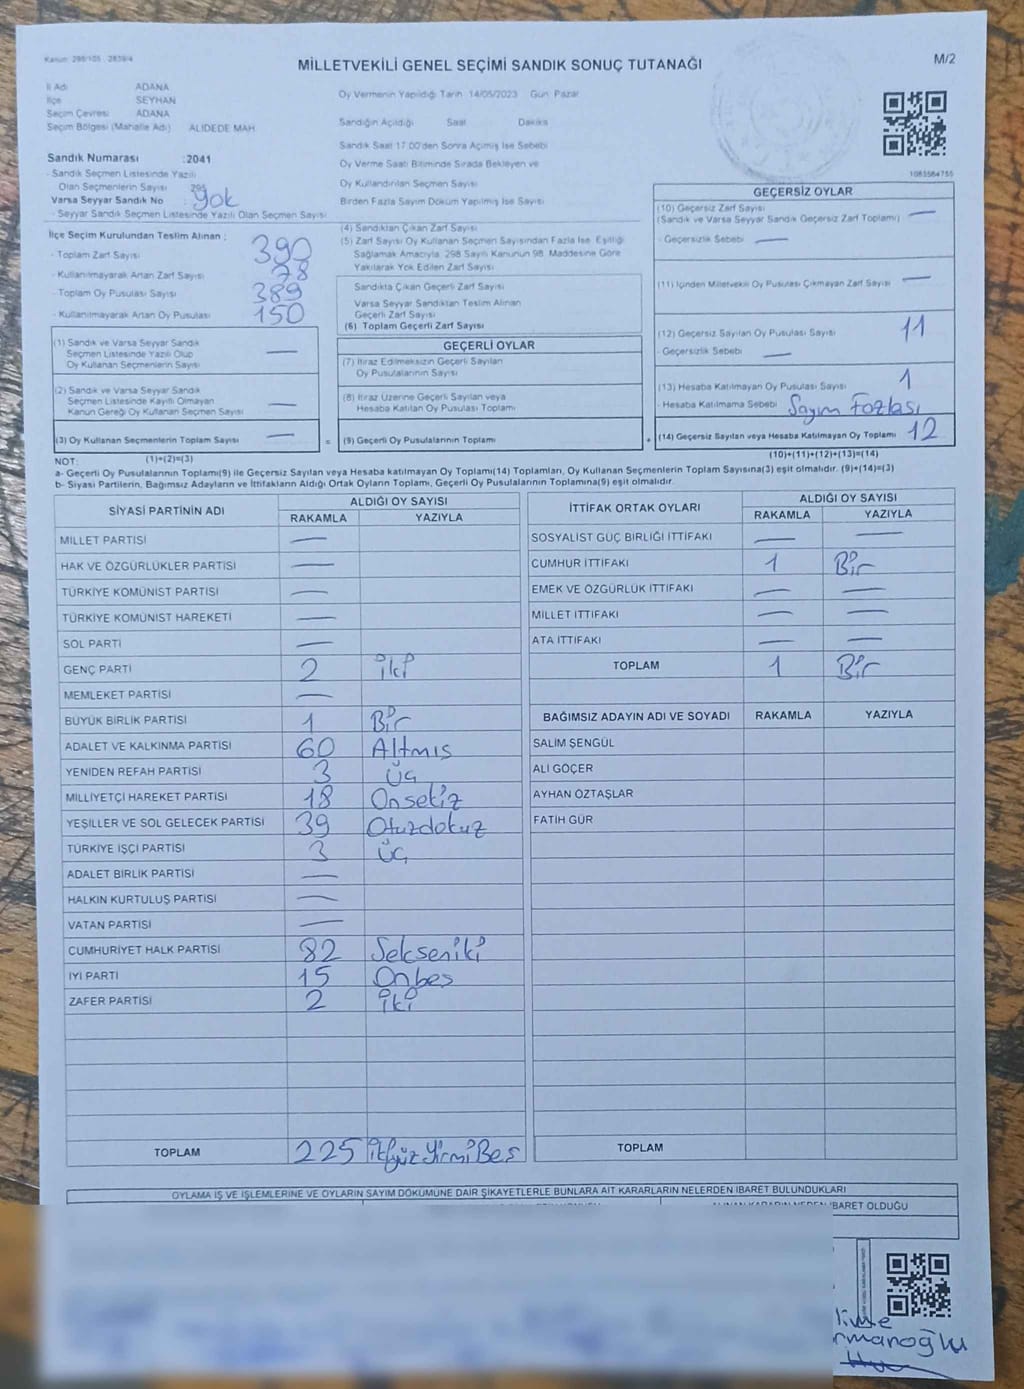 Kanun: 298/105 2839/4
MİLLETVEKİLİ GENEL SEÇİMİ SANDIK SONUÇ TUTANAĞI
M/2
İl Adı ADANA
İlçe SEYHAN
Seçim Çevresi ADANA
Seçim Bölgesi (Mahalle Adı) ALIDEDE MAH
Oy Vermenin Yapıldığı Tarih 14/05/2023 Gün Pazar
Sandığın Açıldığı Saat Dakika
Sandık Saat 17.00'den Sonra Açılmış İse Sebebi
Oy Verme Saati Bitiminde Sırada Bekleyen ve
Oy Kullandırılan Seçmen Sayısı
Birden Fazla Sayım Döküm Yapılmış İse Sayısı
1083564755
Sandık Numarası :2041
- Sandık Seçmen Listesinde Yazılı
Olan Seçmenlerin Sayısı 295
Varsa Seyyar Sandık No : yok
- Seyyar Sandık Seçmen Listesinde Yazılı Olan Seçmen Sayısı
İlçe Seçim Kurulundan Teslim Alınan ;
- Toplam Zarf Sayısı 390
- Kullanılmayarak Artan Zarf Sayısı 78
- Toplam Oy Pusulası Sayısı 389
- Kullanılmayarak Artan Oy Pusulası 150
(1) Sandık ve Varsa Seyyar Sandık
Seçmen Listesinde Yazılı Olup
Oy Kullanan Seçmenlerin Sayısı —
(2) Sandık ve Varsa Seyyar Sandık
Seçmen Listesinde Kayıtlı Olmayan
Kanun Gereği Oy Kullanan Seçmen Sayısı —
(3) Oy Kullanan Seçmenlerin Toplam Sayısı —
(4) Sandıktan Çıkan Zarf Sayısı
(5) Zarf Sayısı Oy Kullanan Seçmen Sayısından Fazla İse, Eşitliği
Sağlamak Amacıyla, 298 Sayılı Kanunun 98. Maddesine Göre
Yakılarak Yok Edilen Zarf Sayısı
Sandıkta Çıkan Geçerli Zarf Sayısı
Varsa Seyyar Sandıktan Teslim Alınan
Geçerli Zarf Sayısı
(6) Toplam Geçerli Zarf Sayısı
GEÇERLİ OYLAR
(7) İtiraz Edilmeksizin Geçerli Sayılan
Oy Pusulalarının Sayısı
(8) İtiraz Üzerine Geçerli Sayılan veya
Hesaba Katılan Oy Pusulası Toplamı
= (9) Geçerli Oy Pusulalarının Toplamı
GEÇERSİZ OYLAR
(10) Geçersiz Zarf Sayısı
(Sandık ve Varsa Seyyar Sandık Geçersiz Zarf Toplamı) —
- Geçersizlik Sebebi —
(11) İçinden Milletvekili Oy Pusulası Çıkmayan Zarf Sayısı —
(12) Geçersiz Sayılan Oy Pusulası Sayısı 11
- Geçersizlik Sebebi —
(13) Hesaba Katılmayan Oy Pusulası Sayısı 1
- Hesaba Katılmama Sebebi Sayım Fazlası
+ (14) Geçersiz Sayılan veya Hesaba Katılmayan Oy Toplamı 12
NOT: (1)+(2)=(3)
(10)+(11)+(12)+(13)=(14)
a- Geçerli Oy Pusulalarının Toplamı(9) ile Geçersiz Sayılan veya Hesaba katılmayan Oy Toplamı(14) Toplamları, Oy Kullanan Seçmenlerin Toplam Sayısına(3) eşit olmalıdır. (9)+(14)=(3)
b- Siyasi Partilerin, Bağımsız Adayların ve İttifakların Aldığı Ortak Oyların Toplamı, Geçerli Oy Pusulalarının Toplamına(9) eşit olmalıdır.
SİYASİ PARTİNİN ADI
ALDIĞI OY SAYISI
RAKAMLA YAZIYLA
MİLLET PARTİSİ —
HAK VE ÖZGÜRLÜKLER PARTİSİ —
TÜRKİYE KOMÜNİST PARTİSİ —
TÜRKİYE KOMÜNİST HAREKETİ —
SOL PARTİ —
GENÇ PARTİ 2 iki
MEMLEKET PARTİSİ —
BÜYÜK BİRLİK PARTİSİ 1 Bir
ADALET VE KALKINMA PARTİSİ 60 Altmıs
YENİDEN REFAH PARTİSİ 3 üç
MİLLİYETÇİ HAREKET PARTİSİ 18 Onsekiz
YEŞİLLER VE SOL GELECEK PARTİSİ 39 Otuzdokuz
TÜRKİYE İŞÇİ PARTİSİ 3 üç
ADALET BİRLİK PARTİSİ —
HALKIN KURTULUŞ PARTİSİ —
VATAN PARTİSİ —
CUMHURİYET HALK PARTİSİ 82 Sekseniki
İYİ PARTİ 15 Onbes
ZAFER PARTİSİ 2 iki
TOPLAM 225 ikiyüzYirmiBes
İTTİFAK ORTAK OYLARI
ALDIĞI OY SAYISI
RAKAMLA YAZIYLA
SOSYALİST GÜÇ BİRLİĞİ İTTİFAKI — —
CUMHUR İTTİFAKI 1 Bir
EMEK VE ÖZGÜRLÜK İTTİFAKI — —
MİLLET İTTİFAKI — —
ATA İTTİFAKI — —
TOPLAM 1 Bir
BAĞIMSIZ ADAYIN ADI VE SOYADI RAKAMLA YAZIYLA
SALİM ŞENGÜL
ALİ GÖÇER
AYHAN ÖZTAŞLAR
FATİH GÜR
TOPLAM
OYLAMA İŞ VE İŞLEMLERİNE VE OYLARIN SAYIM DÖKÜMÜNE DAİR ŞİKAYETLERLE BUNLARA AİT KARARLARIN NELERDEN İBARET BULUNDUKLARI
İBARET OLDUĞU
rmanoğlu